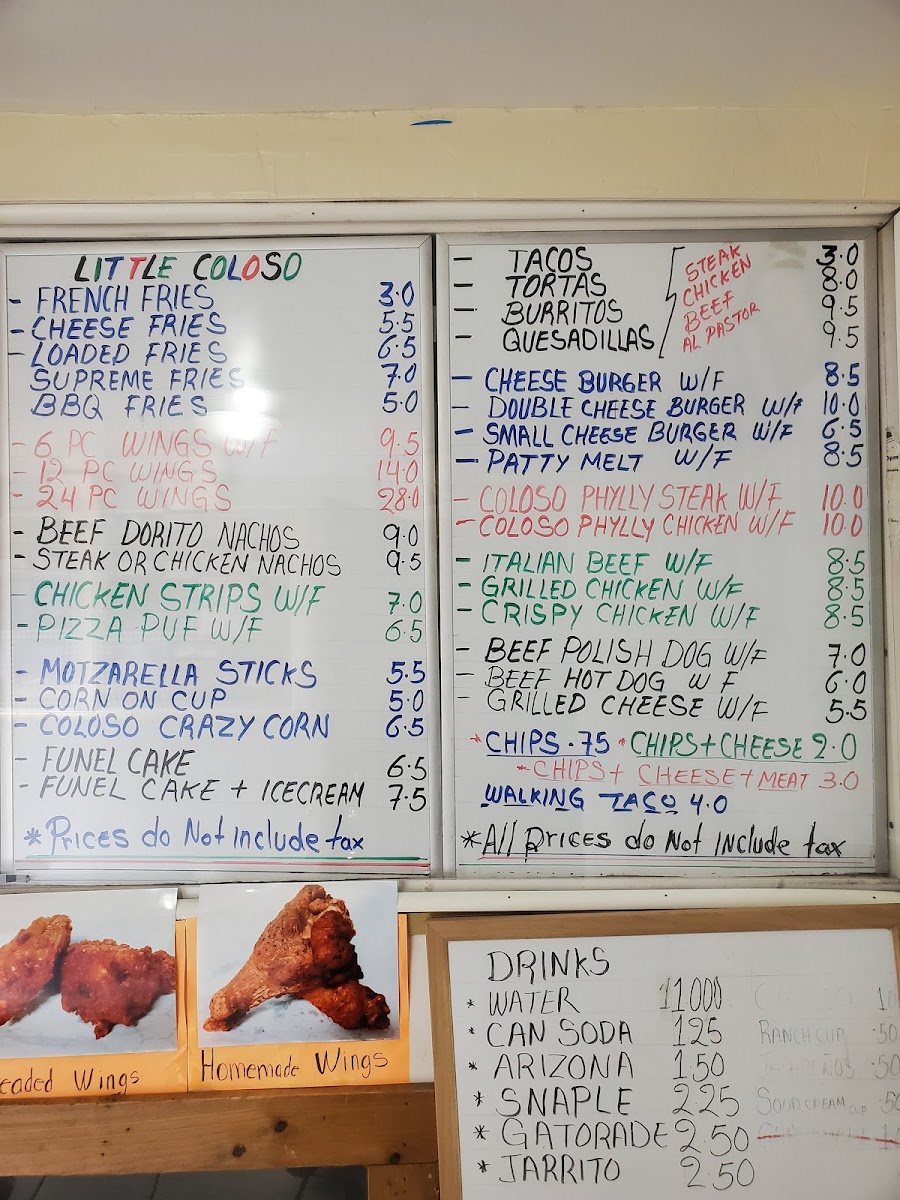 LITTLE COLOSO
- FRENCH FRIES 3.0
- CHEESE FRIES 5.5
- LOADED FRIES 6.5
SUPREME FRIES 7.0
BBQ FRIES 5.0
- 6 PC WINGS W/F 9.5
- 12 PC WINGS 14.0
- 24 PC WINGS 28.0
- BEEF DORITO NACHOS 9.0
- STEAK OR CHICKEN NACHOS 9.5
CHICKEN STRIPS W/F 7.0
- PIZZA PUF W/F 6.5
- MOTZARELLA STICKS 5.5
- CORN ON CUP 5.0
- COLOSO CRAZY CORN 6.5
- FUNEL CAKE 6.5
- FUNEL CAKE + ICECREAM 7.5
*Prices do Not include tax
- TACOS 3.0
- TORTAS 8.0
- BURRITOS 9.5
- QUESADILLAS 9.5
STEAK
CHICKEN
BEEF
AL PASTOR
- CHEESE BURGER W/F 8.5
- DOUBLE CHEESE BURGER W/F 10.0
- SMALL CHEESE BURGER W/F 6.5
- PATTY MELT W/F 8.5
- COLOSO PHYLLY STEAK W/F 10.0
- COLOSO PHYLLY CHICKEN W/F 10.0
- ITALIAN BEEF W/F 8.5
- GRILLED CHICKEN W/F 8.5
- CRISPY CHICKEN W/F 8.5
- BEEF POLISH DOG W/F 7.0
- BEEF HOT DOG W F 6.0
- GRILLED CHEESE W/F 5.5
*CHIPS .75 *CHIPS+CHEESE 2.0
*CHIPS+ CHEESE+MEAT 3.0
WALKING TACO 4.0
*All prices do Not INclude tax
eaded Wings
Homemade Wings
DRINKS
* WATER
* CAN SODA 1.25
* ARIZONA 1.50
* SNAPLE 2.25
* GATORADE 2.50
* JARRITO 2.50
RANCH CUP .50
SOUR CREAM CUP .50